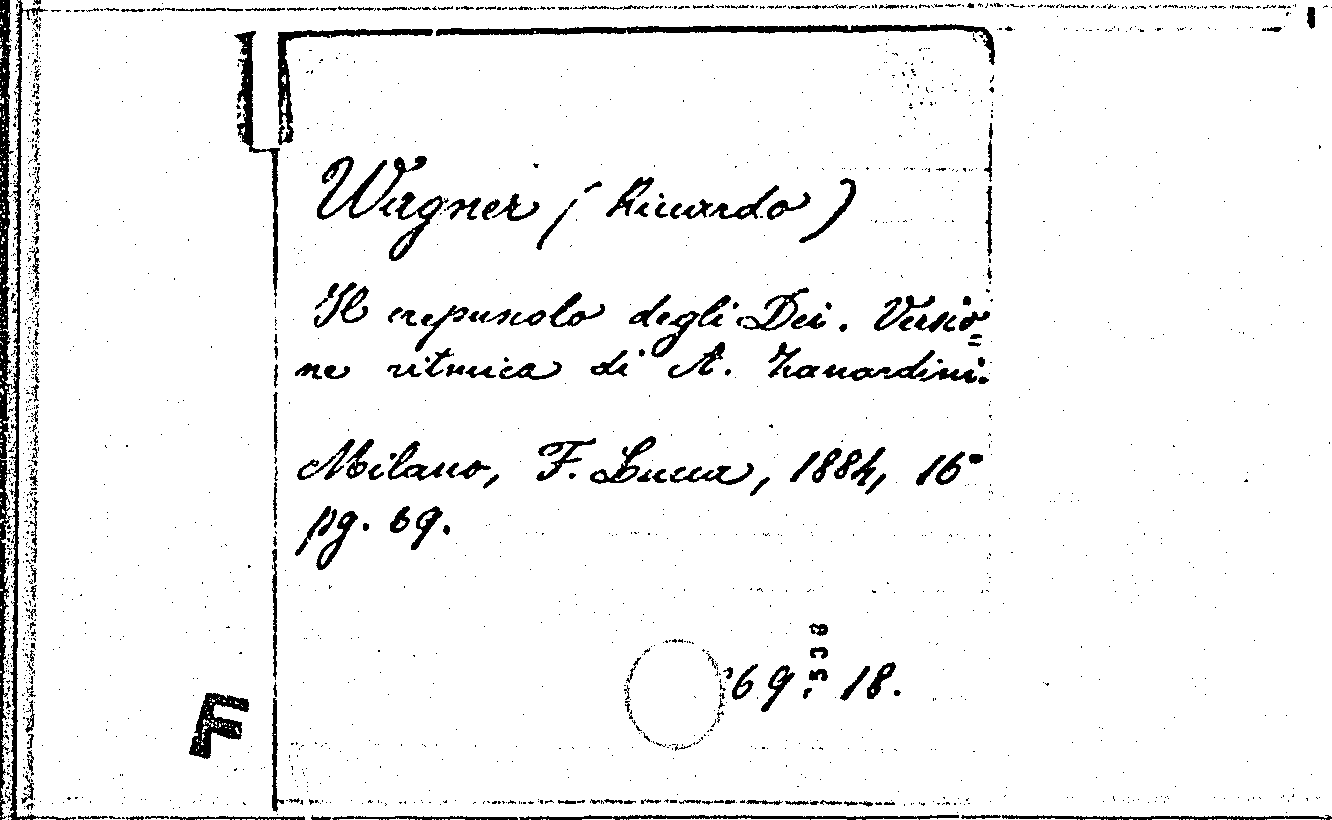 Wagner (Riccardo)
Il crepuscolo degli Dei. Versio=
ne ritmica di A. Zanardini.
Milano, F. Lucca, 1884, 16°
pg. 69.
69. 18.
F